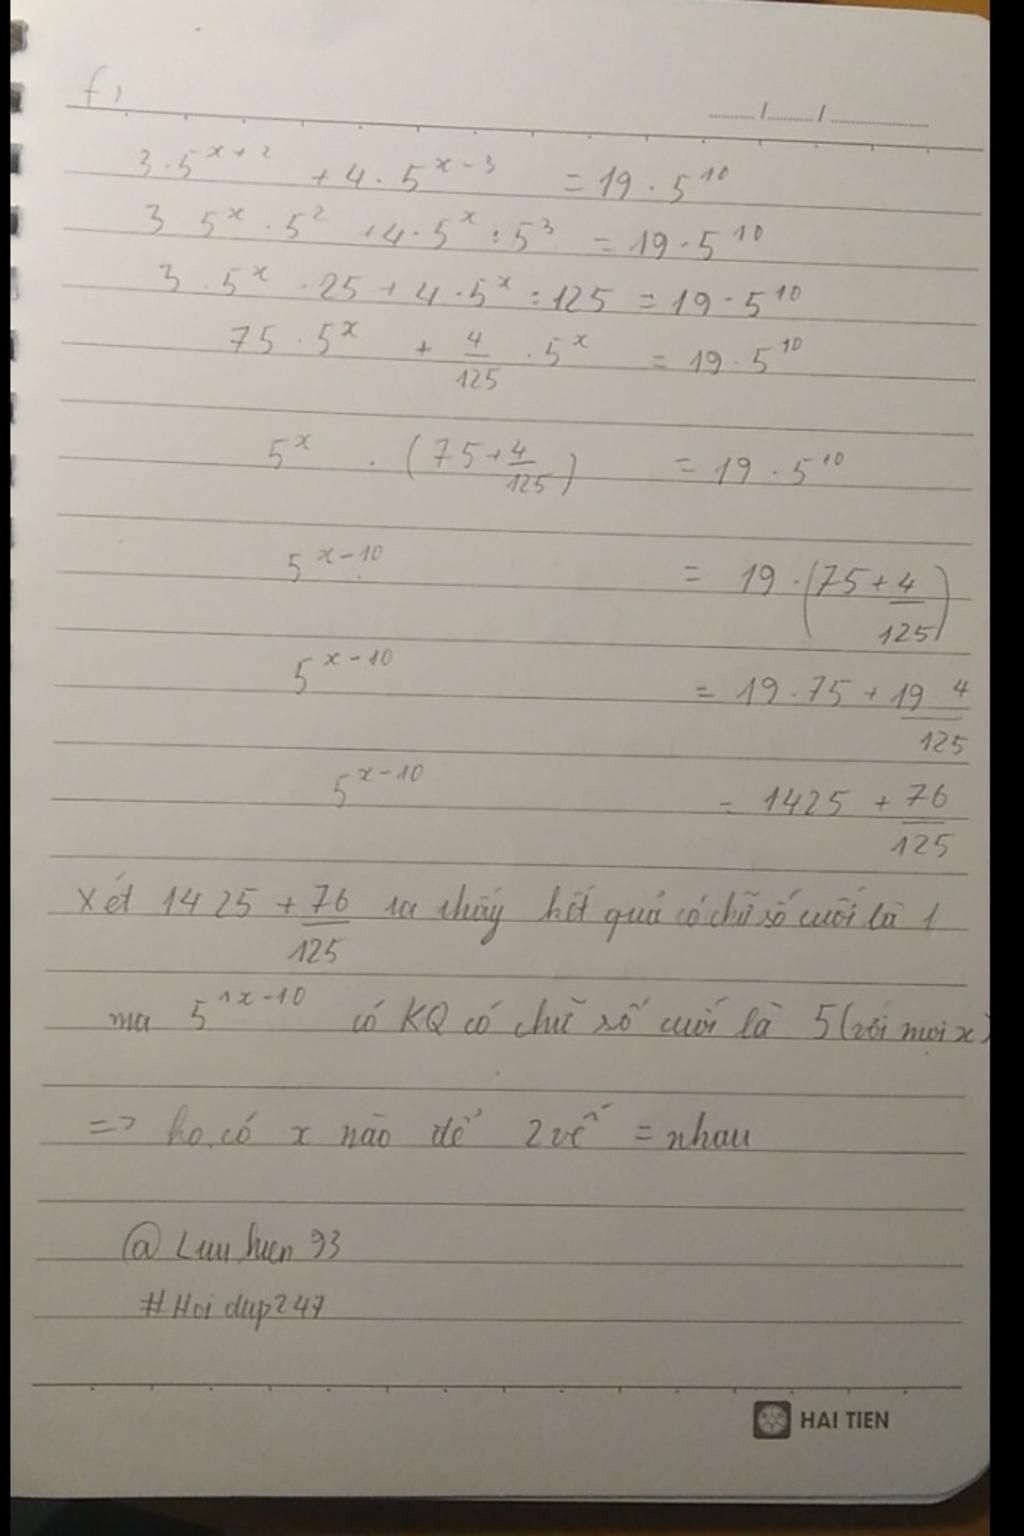 f,
...../...../..........
3.5^{x+2} + 4.5^{x-3} = 19.5^{10}
3 5^x . 5^2 + 4.5^x : 5^3 = 19.5^{10}
3.5^x . 25 + 4.5^x : 125 = 19.5^{10}
75.5^x + 4/125 . 5^x = 19.5^{10}
5^x . (75 + 4/125) = 19.5^{10}
5^{x-10} = 19.(75 + 4/125)
5^{x-10} = 19.75 + 19.4/125
5^{x-10} = 1425 + 76/125
Xét 1425 + 76/125 ta thấy kết quả có chữ số cuối là 1
mà 5^{x-10} có KQ có chữ số cuối là 5 (với mọi x)
=> ko có x nào để 2 vế = nhau
@Luuhien93
#Hoidap247
HAI TIEN